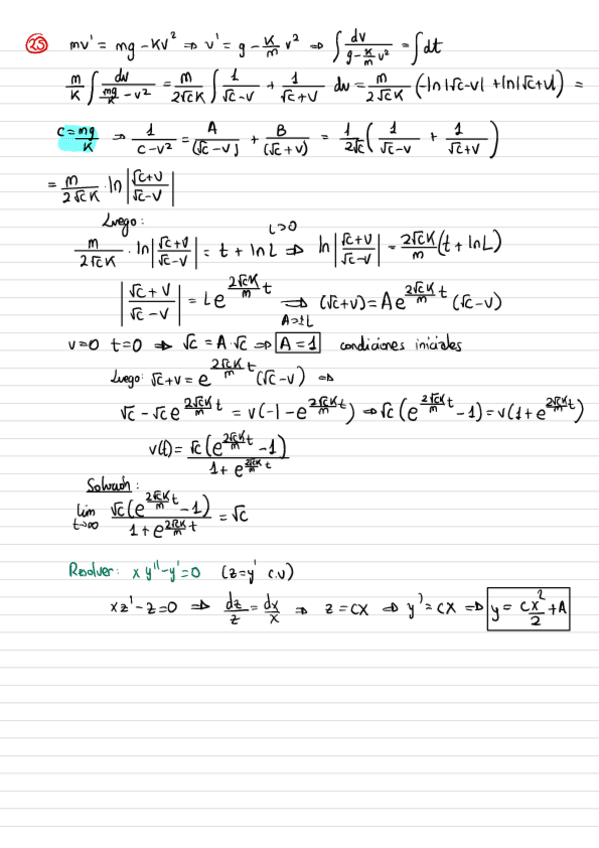 25 mv' = mg - Kv² ⇒ v' = g - K/m v² ⇒ ∫ dv/(g - K/m v²) = ∫dt
m/K ∫ dv/(mg/K - v²) = m/(2√c K) ∫ 1/(√c-v) + 1/(√c+v) dv = m/(2√c K) (-ln|√c-v| + ln|√c+v|) =
c = mg/K ⇒ 1/(c-v²) = A/(√c-v) + B/(√c+v) = 1/(2√c) (1/(√c-v) + 1/(√c+v))
= m/(2√c K) · ln|(√c+v)/(√c-v)|
Luego: L>0
m/(2√c K) · ln|(√c+v)/(√c-v)| = t + lnL ⇒ ln|(√c+v)/(√c-v)| = 2√cK/m (t + lnL)
|(√c+v)/(√c-v)| = Le^(2√cK/m t) ⇒ A=±L (√c+v) = Ae^(2√cK/m t) (√c-v)
v=0 t=0 ⇒ √c = A·√c ⇒ A=1 condiciones iniciales
Luego: √c+v = e^(2√cK/m t) (√c-v) ⇒
√c - √c e^(2√cK/m t) = v(-1 - e^(2√cK/m t)) ⇒ √c(e^(2√cK/m t) - 1) = v(1+e^(2√cK/m t))
v(t) = √c(e^(2√cK/m t) - 1)/(1+e^(2√cK/m t))
Solución:
lim t→∞ √c(e^(2√cK/m t) - 1)/(1+e^(2√cK/m t)) = √c
Resolver: x y'' - y' = 0 (z=y' c.v)
xz' - z = 0 ⇒ dz/z = dx/x ⇒ z = cx ⇒ y' = cx ⇒ y = cx²/2 + A